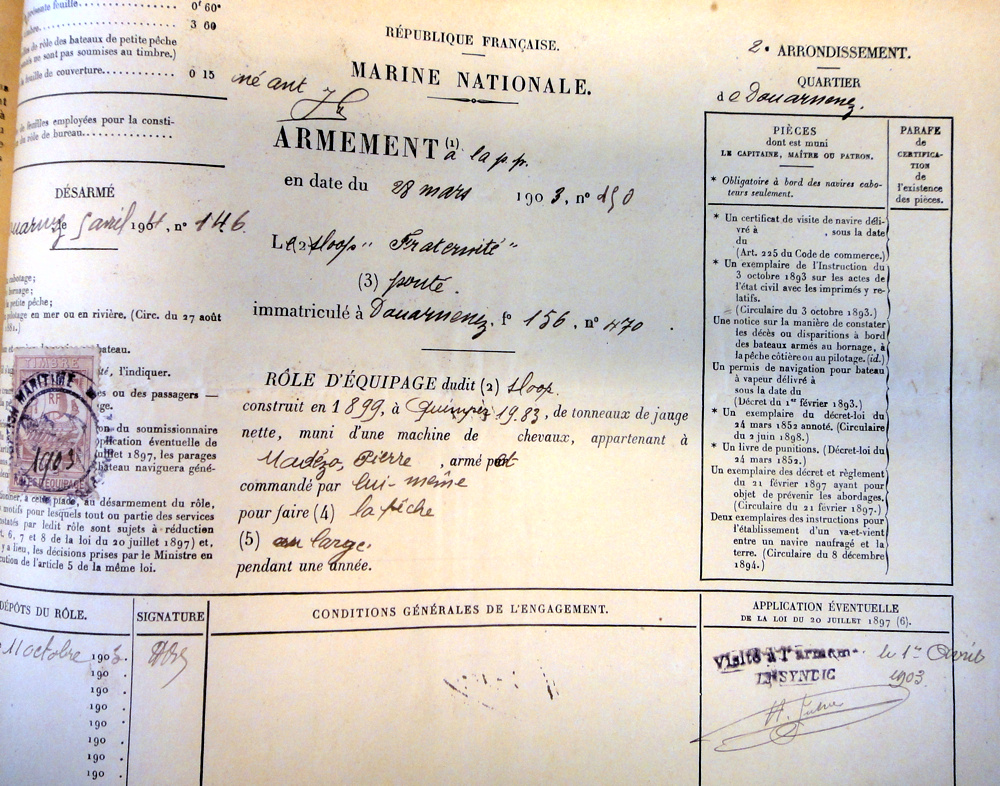 présente feuille. 0f 60c
3 60
de rôle des bateaux de petite pêche
ne sont pas soumises au timbre.)
feuille de couverture. 0 15
feuilles employées pour la consti-
du rôle de bureau.
DÉSARMÉ
le 5 avril 1904, n° 146
cabotage;
bornage;
petite pêche;
en mer ou en rivière. (Circ. du 27 août
bateau.
l'indiquer.
es ou des passagers —
TIMBRE
RF
MARITIME
1903
du soumissionnaire
application éventuelle de
juillet 1897, les parages
bateau naviguera géné-
à cette place, au désarmement du rôle,
motifs pour lesquels tout ou partie des services
constatés par ledit rôle sont sujets à réduction
6, 7 et 8 de la loi du 20 juillet 1897) et,
y a lieu, les décisions prises par le Ministre en
de l'article 5 de la même loi.
RÉPUBLIQUE FRANÇAISE.
MARINE NATIONALE.
néant
ARMEMENT (1) à la p.p.
en date du 28 mars 1903, n° 150
Le (2) sloop " Fraternité "
(3) ponté.
immatriculé à Douarnenez, f° 156, n° 470.
RÔLE D'ÉQUIPAGE dudit (2) sloop
construit en 1899, à Quimper 19.83, de tonneaux de jauge
nette, muni d'une machine de chevaux, appartenant à
Madézo, Pierre, armé
commandé par lui-même
pour faire (4) la pêche
(5) au large.
pendant une année.
2e ARRONDISSEMENT.
QUARTIER
de Douarnenez.
PIÈCES
dont est muni
LE CAPITAINE, MAÎTRE OU PATRON.
* Obligatoire à bord des navires cabo-
teurs seulement.
PARAFE
de
CERTIFICA-
TION
de
l'existence
des pièces.
* Un certificat de visite de navire déli-
vré à , sous la date
du
(Art. 225 du Code de commerce.)
* Un exemplaire de l'Instruction du
3 octobre 1893 sur les actes de
l'état civil avec les imprimés y re-
latifs.
(Circulaire du 3 octobre 1893.)
Une notice sur la manière de constater
les décès ou disparitions à bord
des bateaux armés au bornage, à
la pêche côtière ou au pilotage. (id.)
Un permis de navigation pour bateau
à vapeur délivré à
sous la date du
(Décret du 1er février 1893.)
* Un exemplaire du décret-loi du
24 mars 1852 annoté. (Circulaire
du 2 juin 1898.)
* Un livre de punitions. (Décret-loi du
24 mars 1852.)
Un exemplaire des décret et règlement
du 21 février 1897 ayant pour
objet de prévenir les abordages.
(Circulaire du 21 février 1897.)
Deux exemplaires des instructions pour
l'établissement d'un va-et-vient
entre un navire naufragé et la
terre. (Circulaire du 8 décembre
1894.)
DÉPÔTS DU RÔLE.
SIGNATURE
CONDITIONS GÉNÉRALES DE L'ENGAGEMENT.
APPLICATION ÉVENTUELLE
DE LA LOI DU 20 JUILLET 1897 (6).
11 octobre 1903.
190 .
190 .
190 .
190 .
190 .
190 .
190 .
Visité à l'armem- le 1er Avril
LE SYNDIC 1903